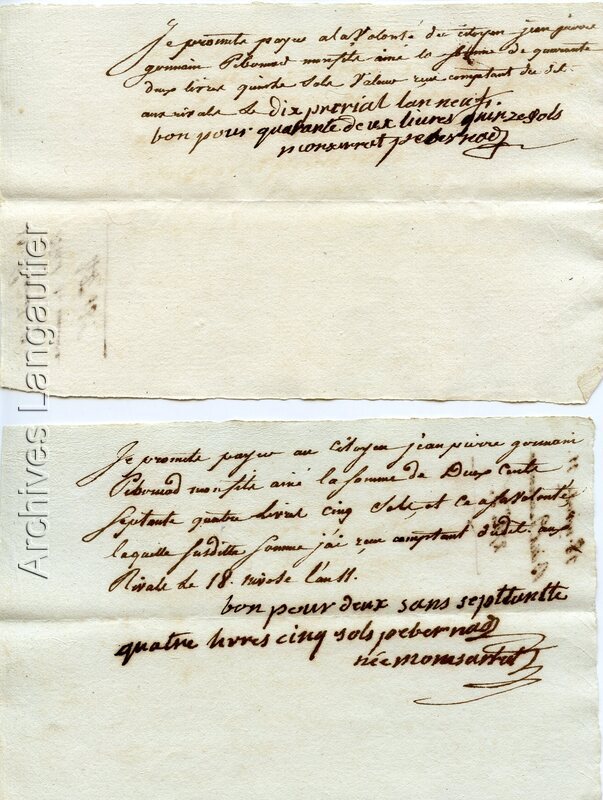 je promets payer a la Volonté du citoyen jean pierre
germain Pebernad mon fils ainé la somme de quarante
deux livres quinse sols Valeur reçue comptant du dit
aux rivals le dix prérial lan neuf.
bon pour quarante deux livres quinze sols
monserrat pebernad
Je promets payer au Citoyen jean pierre germain
Pebernad mon fils ainé la somme de Deux cents
septante quatre livres cinq sols et ce a sa volonté
laquelle susditte somme j'ai reçue comptant dudit aux
Rivals le 18. nivose l'an 11.
bon peur deux sans septtantte
quatre livres cinq sols pebernad
née momsarrat
Archives Langautier